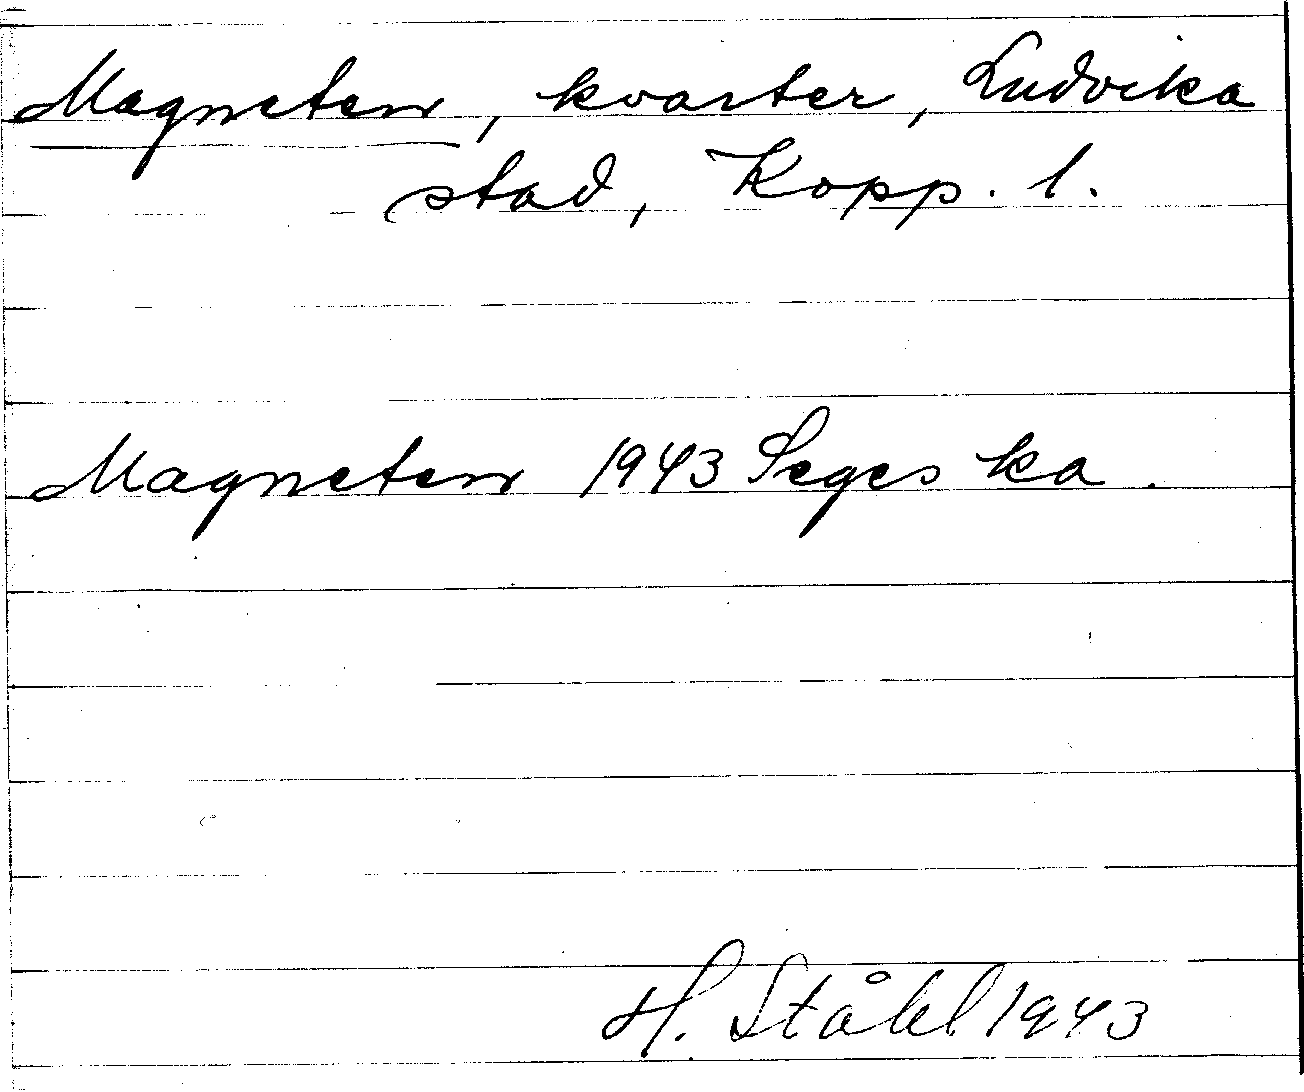 Magneten, kvarter, Ludvika
stad, Kopp. l.
Magneten 1943 Seges ka.
H. Ståhl 1943